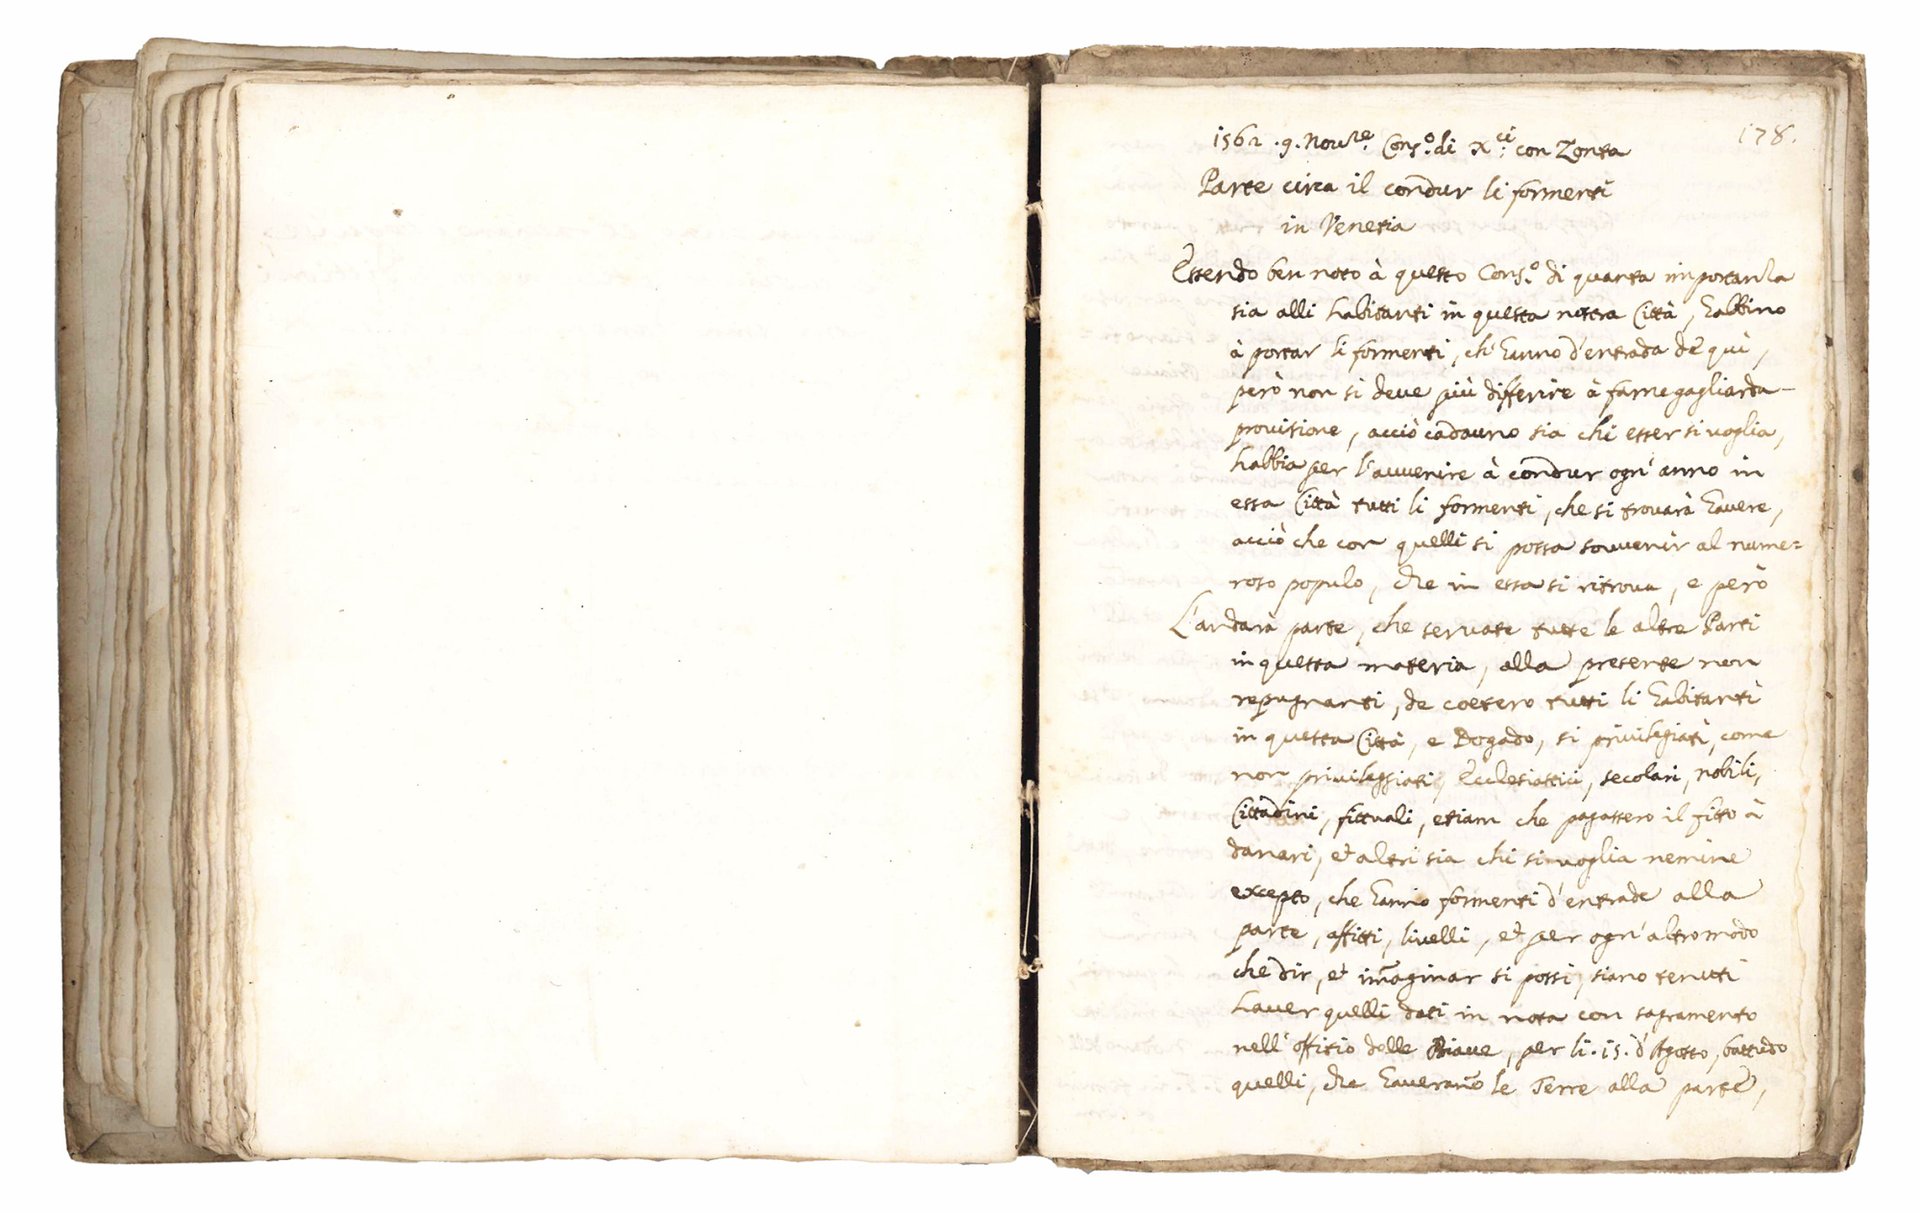 178.
1562 .9. Nov.re Cons.o di X.ci con Zonta
Parte circa il condur li formenti
in Venetia
Essendo ben noto à questo Cons.o di quanta importanza
sia alli habitanti in questa nostra Città, habbino
à portar li formenti, ch'hanno d'entrada de qui,
però non si deve più differire à farne gagliarda
provisione, acciò cadauno sia chi esser si voglia,
habbia per l'avvenire à condur ogn'anno in
essa Città tutti li formenti, che si trovarà havere,
acciò che con quelli si possa sovvenir al nume=
roso populo, che in essa si ritrova, e però
L'andarà parte, che servate tutte le altre Parti
in questa materia, alla presente non
repugnanti, de coetero tutti li habitanti
in questa Città, e Dogado, si privilegiati, come
non privileggiati, Ecclesiastici, secolari, nobili,
Cittadini, fittuali, etiam che pagassero il fitto à
danari, et altri sia chi si voglia nemine
excepto, che hanno formenti d'entrade alla
parte, affitti, livelli, et per ogn'altro modo
che dir, et imaginar si possi, siano tenuti
haver quelli dati in nota con sagramento
nell'offitio delle Biave, per li .15. d'Agosto, battudo
quelli, che haveranno le Terre alla parte,